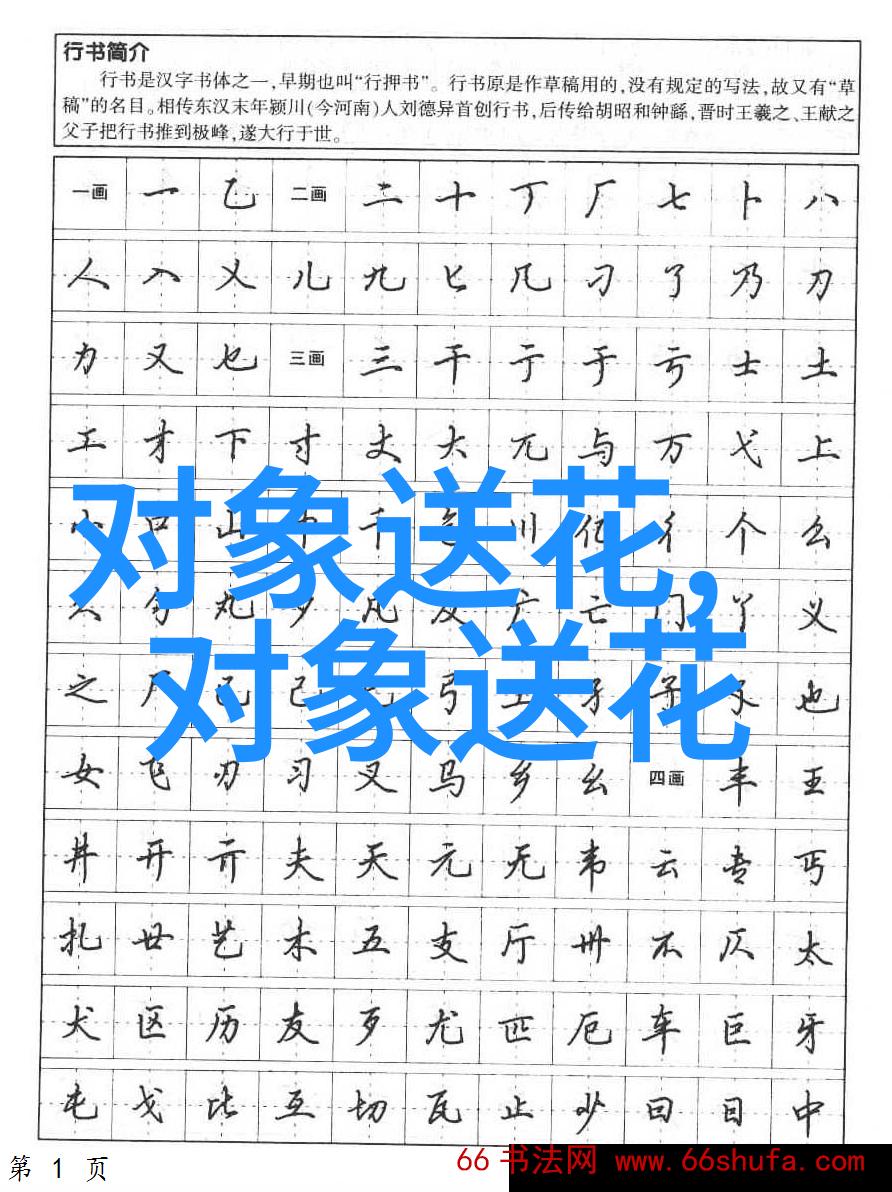 行书简介
行书是汉字书体之一,早期也叫“行押书”。行书原是作草稿用的,没有规定的写法,故又有“草
稿”的名目。相传东汉末年颍川(今河南)人刘德昇首创行书,后传给胡昭和钟繇,晋时王羲之、王献之
父子把行书推到极峰,遂大行于世。
一画 一 乙 二画 二 十 丁 厂 七 卜 八
人 入 乂 儿 九 匕 几 刁 了 乃 刀
力 又 也 三画 三 干 亍 于 亏 士 土
工 才 下 寸 丈 大 兀 与 万 弋 上
小 口 山 巾 千 川 亿 彳 个 么
对象送花,
久 勺 丸 夕 凡 及 广 亡 门 丫 义
对象送花
之 尸 己 己 弓 卫 子 也
女 飞 刃 习 叉 马 乡 幺 四画 丰 王
井 开 亓 夫 天 元 无 韦 云 专 丐
扎 廿 艺 木 五 支 厅 卅 不 仄 太
犬 区 历 友 歹 尤 匹 厄 车 巨 牙
屯 戈 比 互 切 瓦 止 少 曰 日 中
第 1 页
66书法网 www.66shufa.com